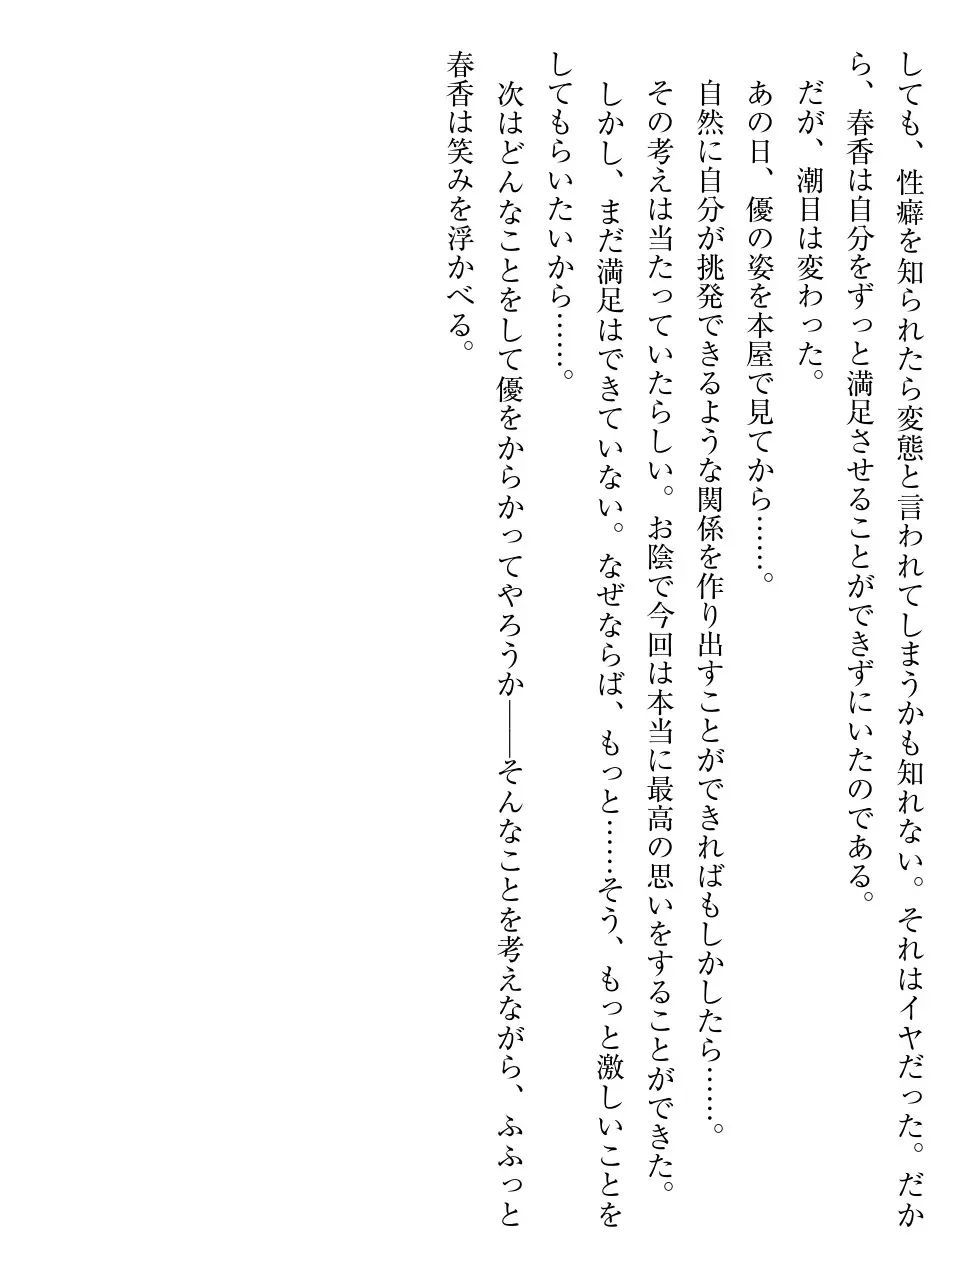 しても、性癖を知られたら変態と言われてしまうかも知れない。それはイヤだった。だか
ら、春香は自分をずっと満足させることができずにいたのである。
だが、潮目は変わった。
あの日、優の姿を本屋で見てから……。
自然に自分が挑発できるような関係を作り出すことができればもしかしたら……。
その考えは当たっていたらしい。お陰で今回は本当に最高の思いをすることができた。
しかし、まだ満足はできていない。なぜならば、もっと……そう、もっと激しいことを
してもらいたいから……。
次はどんなことをして優をからかってやろうか――そんなことを考えながら、ふふっと
春香は笑みを浮かべる。